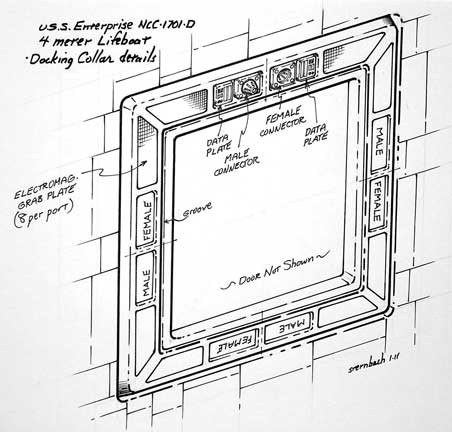 U.S.S. Enterprise NCC·1701·D
4 meter Lifeboat
·Docking Collar details
DATA
PLATE
MALE
CONNECTOR
FEMALE
CONNECTOR
DATA
PLATE
ELECTROMAG.
GRAB PLATE
(8 per port)
groove
FEMALE
MALE
MALE
FEMALE
~ Door Not Shown ~
FEMALE
MALE
sternbach 1·11